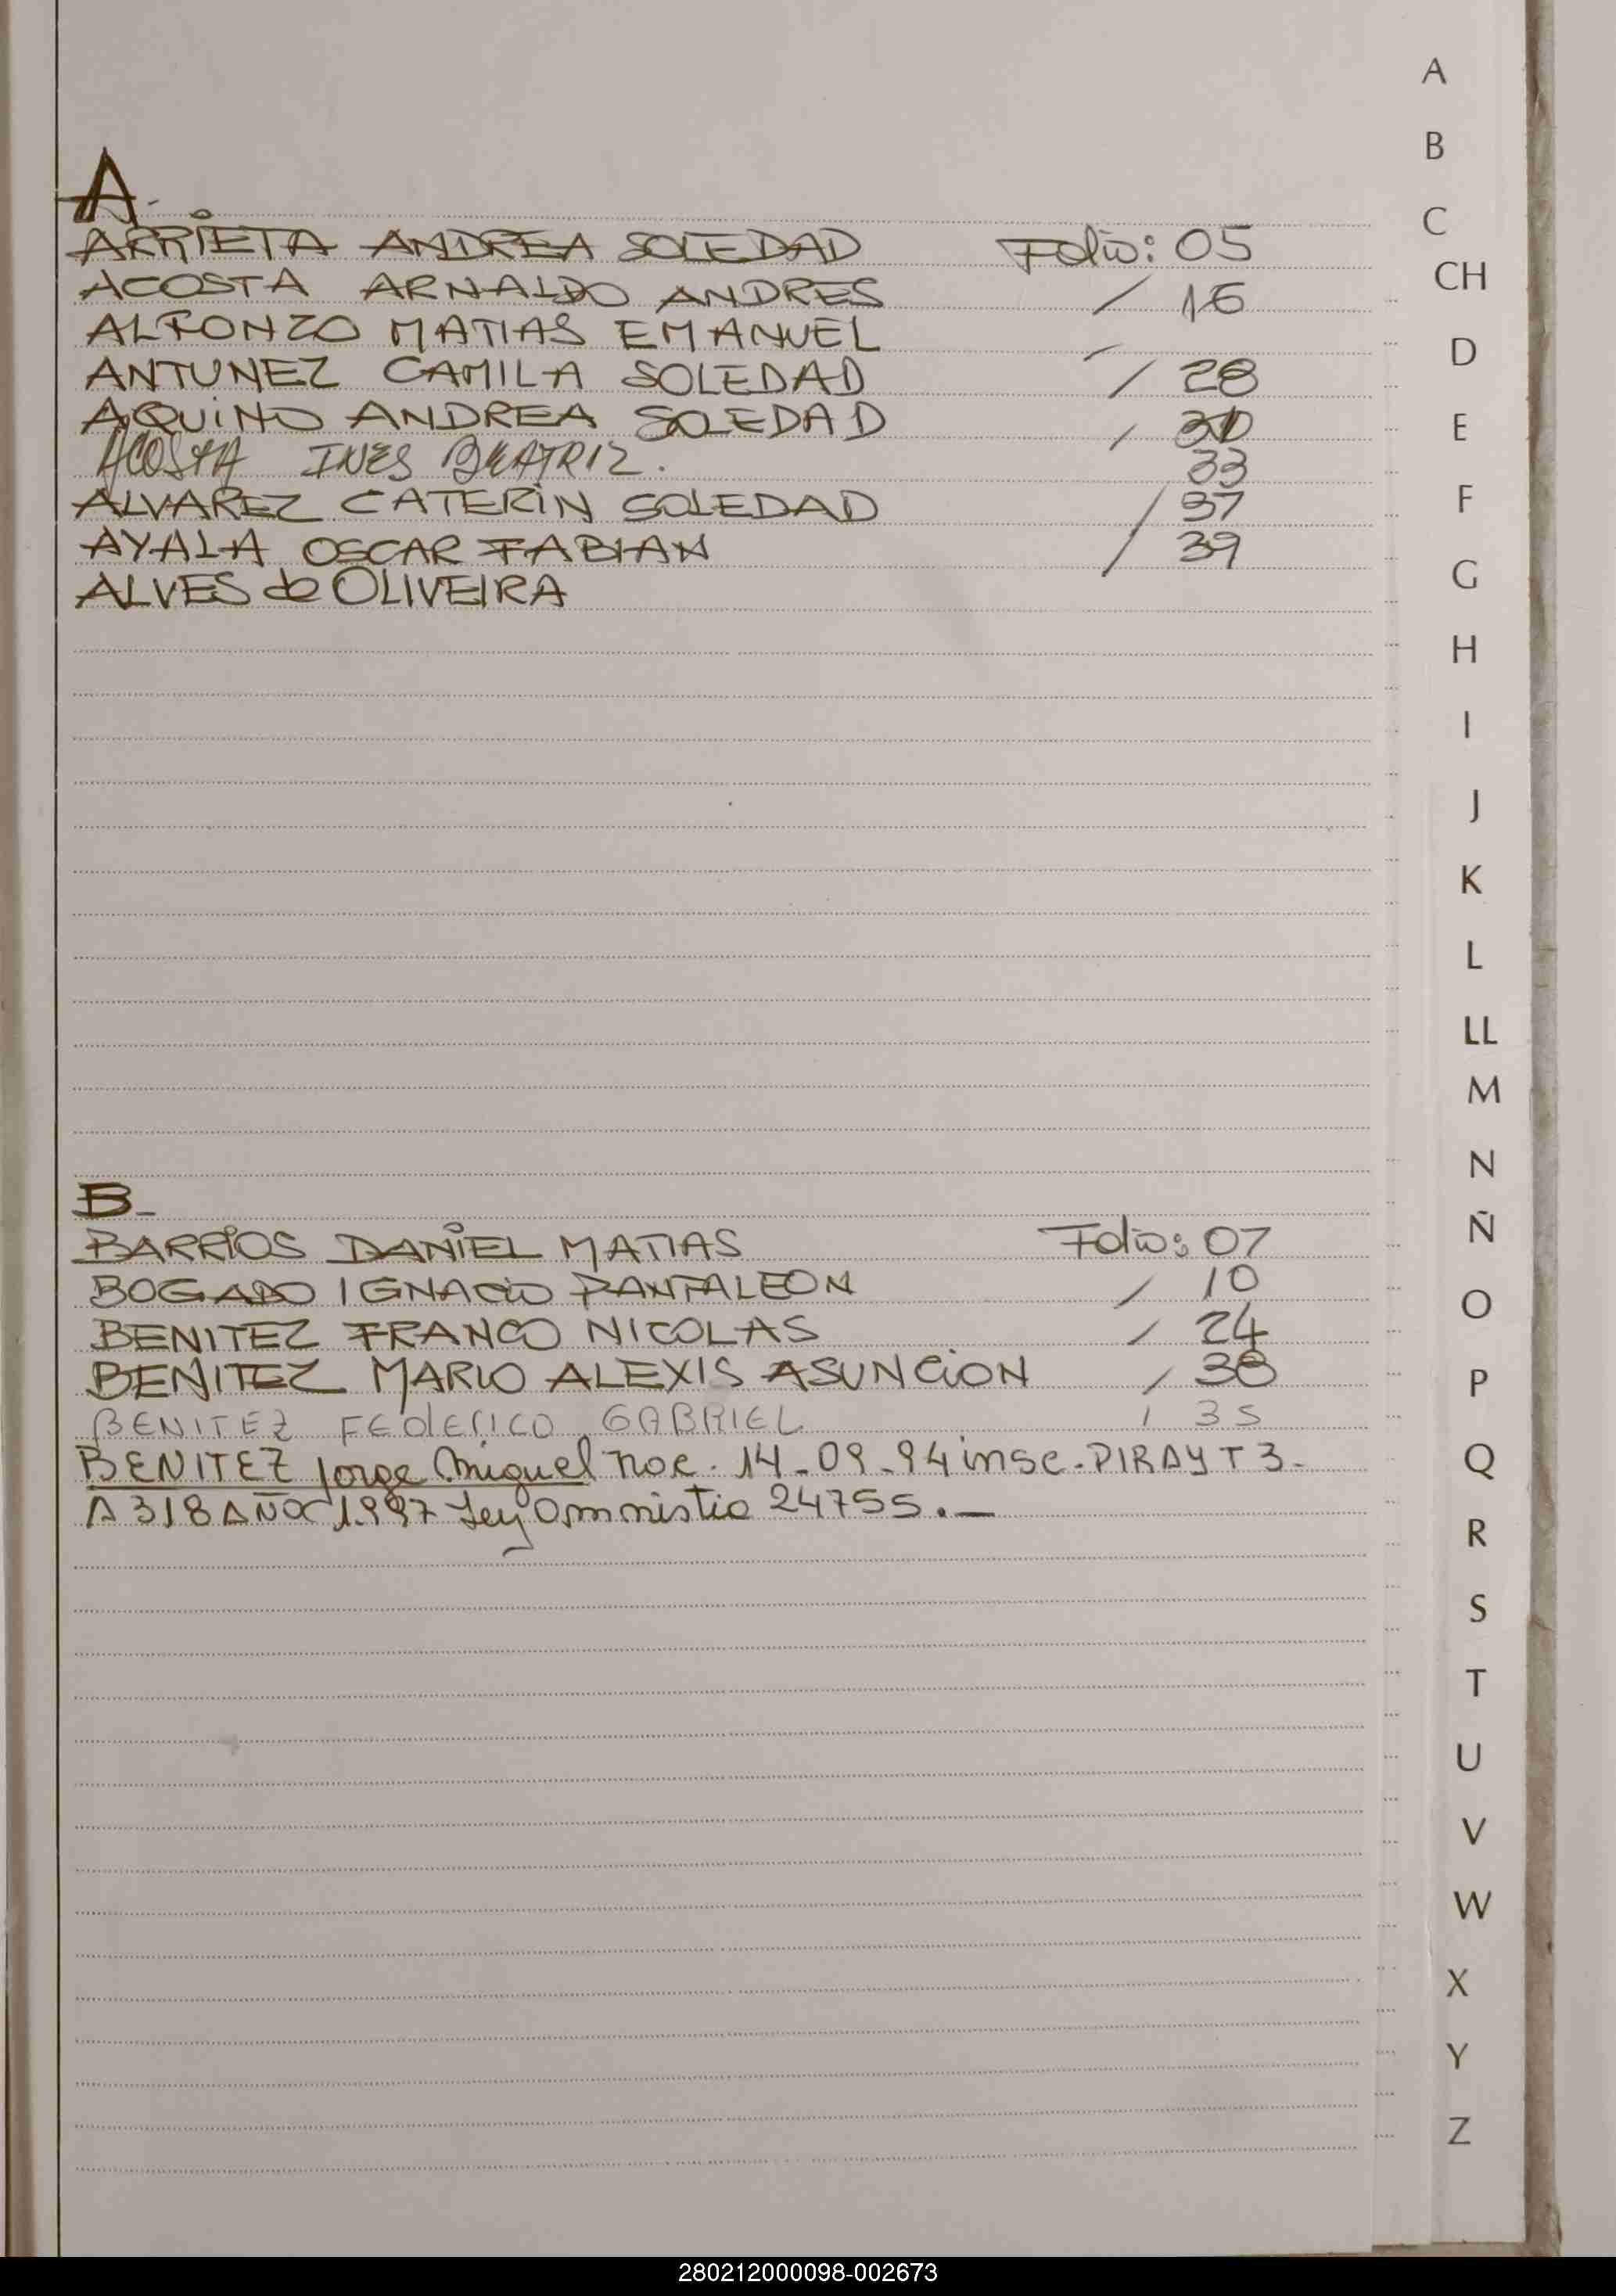 A.-
ARRIETA ANDREA SOLEDAD Folio: 05
ACOSTA ARNALDO ANDRES / 16
ALFONZO MATIAS EMANUEL –
ANTUNEZ CAMILA SOLEDAD / 28
AQUINO ANDREA SOLEDAD /
ACOSTA INES BEATRIZ. 33
ALVAREZ CATERIN SOLEDAD / 37
AYALA OSCAR FABIAN / 39
ALVES de OLIVEIRA
B_
BARRIOS DANIEL MATIAS Folio: 07
BOGADO IGNACIO PANTALEON / 10
BENITEZ FRANCO NICOLAS / 24
BENITEZ MARIO ALEXIS ASUNCION / 38
BENITEZ FEDERICO GABRIEL / 35
BENITEZ Jorge Miguel nac. 14-09-94 insc. PIRAY T 3-
A 318 AÑO 1.997 Ley Amnistia 24755.—
A
B
C
CH
D
E
F
G
H
I
J
K
L
LL
M
N
Ñ
O
P
Q
R
S
T
U
V
W
X
Y
Z
280212000098-002673